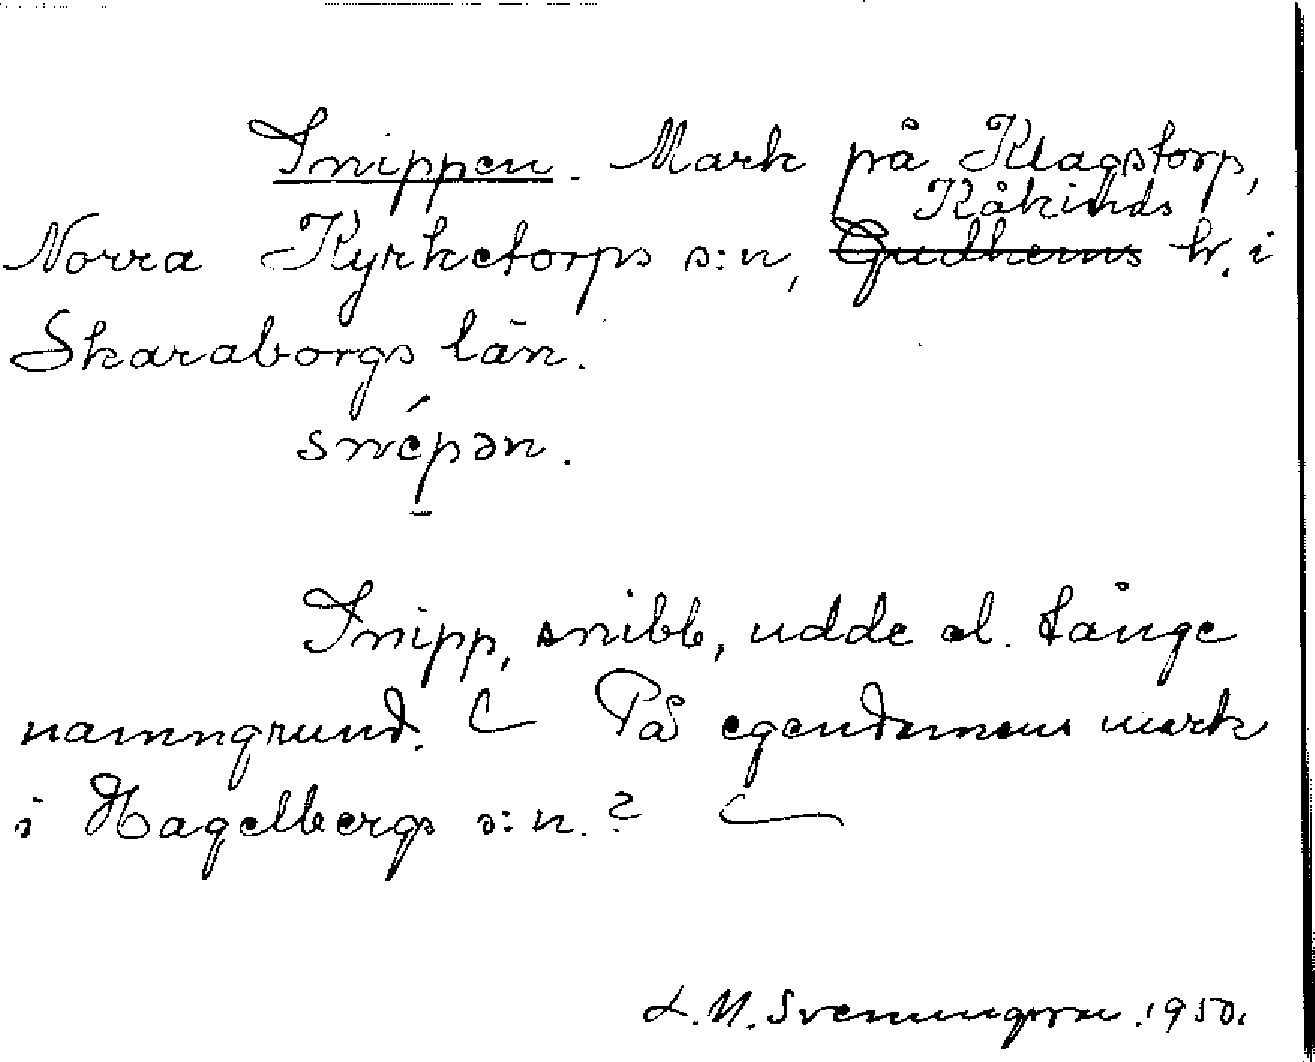 Snippen. Mark på Klagstorp,
Kåkinds
Norra Kyrketorps s:n, Gudhems hr. i
Skaraborgs län.
snépən.
Snipp, snibb, udde el. tånge
namngrund. På egendomens mark
i Hagelbergs s:n.?
L. M. Svenungsson. 1950.